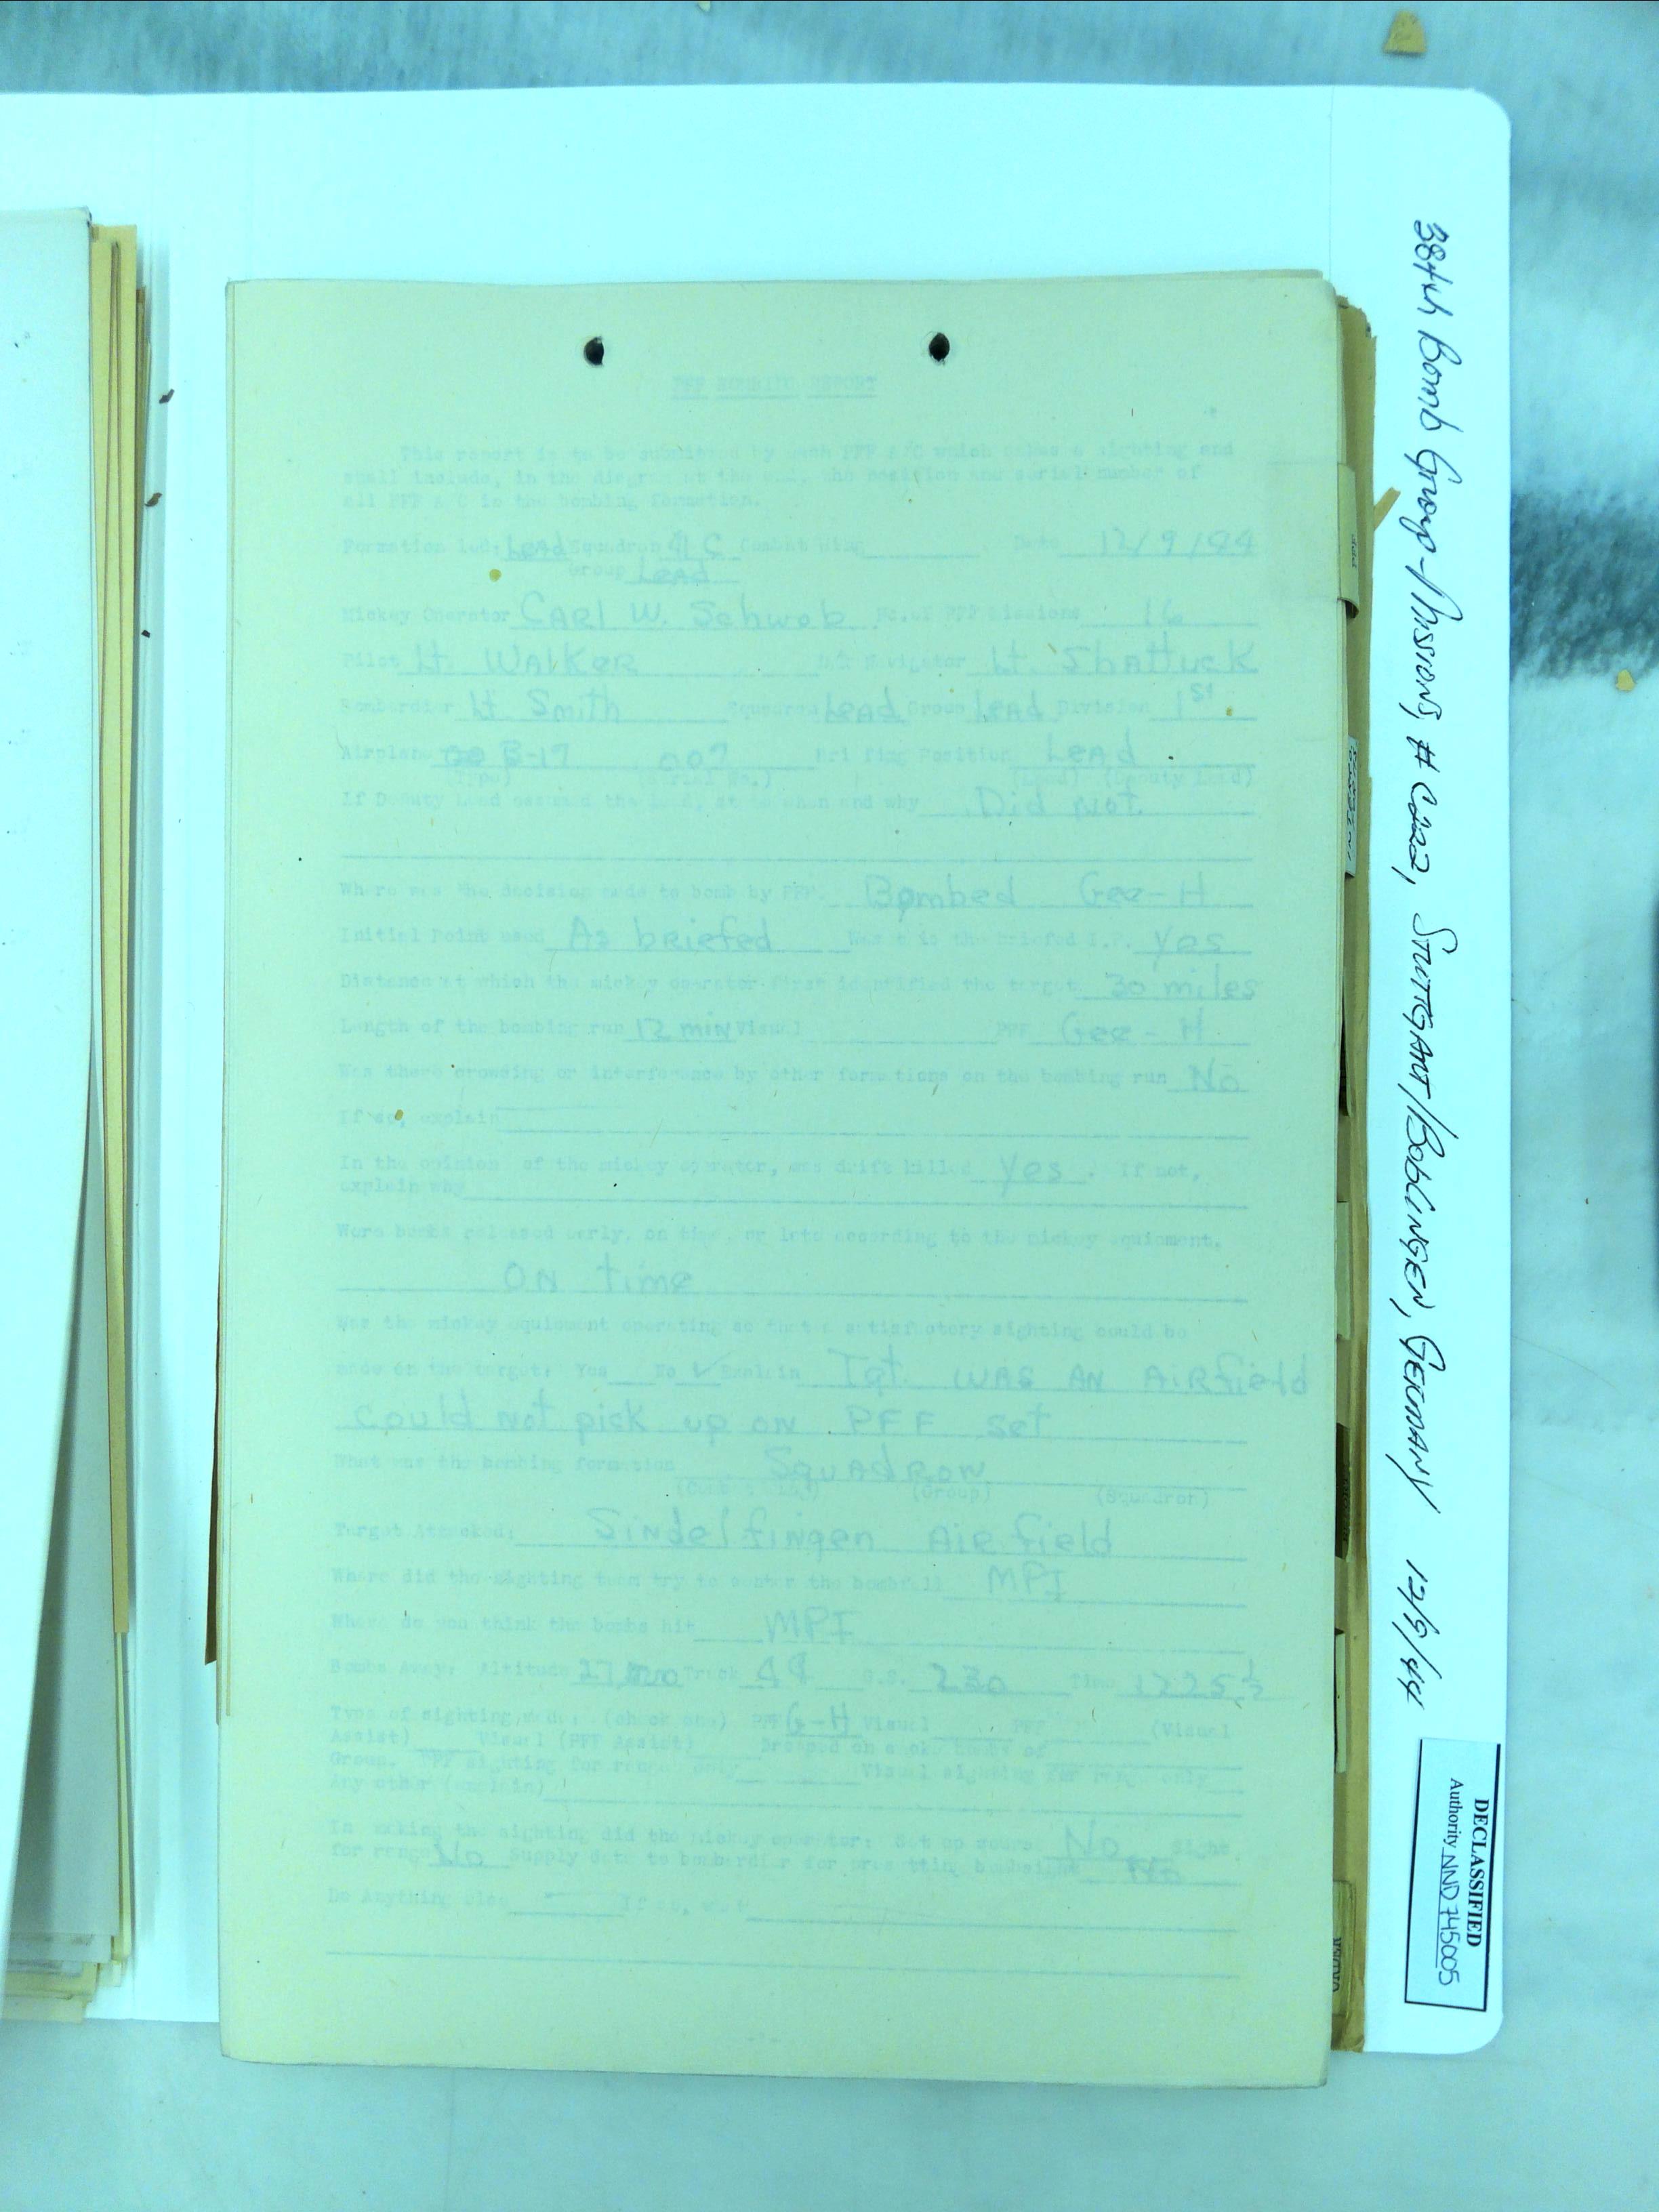 PFF BOMBING REPORT
This report is to be submitted by each PFF A/C which makes a sighting and
shall include, in the diagram at the end, the position and serial number of
all PFF A/C in the bombing formation.
Formation led: Lead Squadron C Combat Wing Date 12/9/44
Group Lead
Mickey Operator Carl W. Schwob No. of PFF Missions 16
Pilot Lt. Walker Navigator Lt. Shattuck
Bombardier Lt Smith Squadron Lead Group Lead Division 1st
Airplane B-17 007 Position Lead
(Type) (Serial No.) (Lead) (Deputy Lead)
If Deputy Lead assumed the lead, state when and why Did not
Where was the decision made to bomb by PFF. Bombed Gee-H
Initial Point used As briefed Was this the briefed I.P. Yes
Distance at which the mickey operator first identified the target 30 miles
Length of the bombing run 12 min Visual PFF Gee-H
Was there crowding or interference by other formations on the bombing run No
If so, explain
In the opinion of the mickey operator, was drift killed Yes. If not,
explain why
Were bombs released early, on time, or late according to the mickey equipment.
On time
Was the mickey equipment operating so that a satisfactory sighting could be
made on the target: Yes No ✓ Explain Tgt. was an airfield
could not pick up on PFF set
What was the bombing formation Squadron
(Combat Wing) (Group) (Squadron)
Target Attacked: Sindelfingen Airfield
Where did the sighting team try to center the bombfall MPI
Where do you think the bombs hit MPI
Bombs Away: Altitude Track G.S. 230 Time 1225½
Type of sighting made: (check one) PFF G-H Visual PFF (Visual
Assist) Visual (PFF Assist) Dropped on smoke bombs of
Group. PFF sighting for range only Visual sighting for range only
Any other (explain)
In making the sighting did the mickey operator: Set up course No Sight
for range No Supply data to bombardier for presetting bombsight No
Do Anything else If so, what
384th Bomb Group - Missions # C222, Stuttgart/Boblingen, Germany 12/9/44
DECLASSIFIED
Authority NND745005